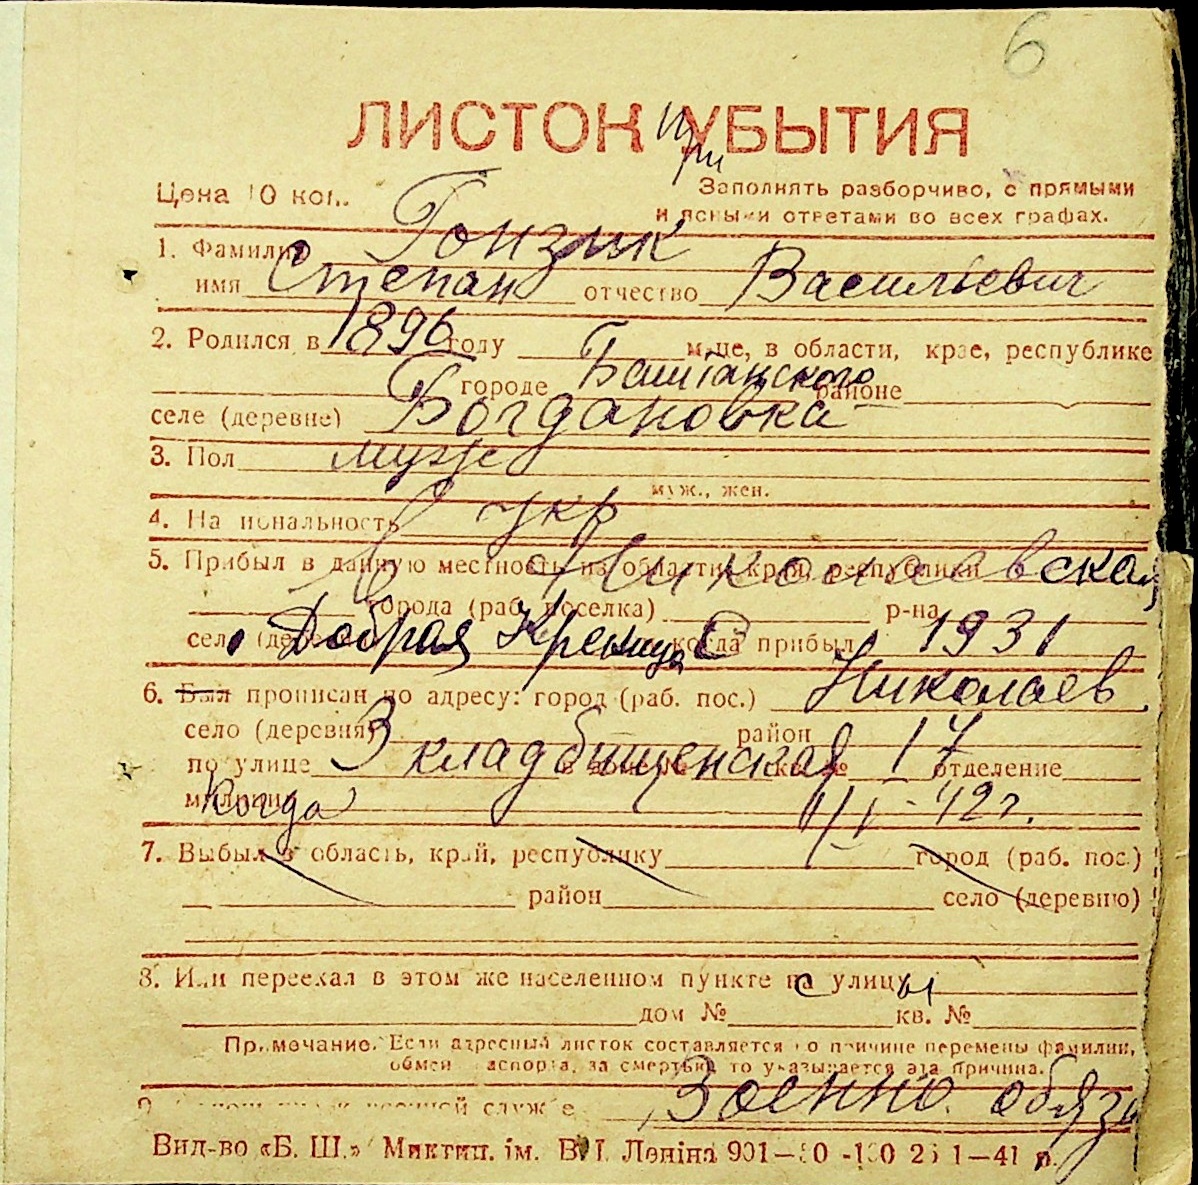 6
ЛИСТОК УБЫТИЯ
при
Цена 10 коп.
Заполнять разборчиво, с прямыми
и ясными ответами во всех графах.
1. Фамилия Гонзик
имя Степан отчество Васильевич
2. Родился в 1896 году м-це, в области, крае, республике
городе Баштанского районе
селе (деревне) Богдановка
3. Пол муж
муж., жен.
4. Национальность укр
5. Прибыл в данную местность из области, края, республики Николаевская
города (раб. поселка) р-на
села (деревни) Добрая Креница когда прибыл С 1931
6. Был прописан по адресу: город (раб. пос.) Николаев
село (деревня) район
по улице 3 кладбищенская 17 отделение
милиции когда 1/I-42г.
7. Выбыл в область, край, республику город (раб. пос.)
район село (деревню)
8. Или переехал в этом же населенном пункте с улицы
дом № кв. №
Примечание. Если адресный листок составляется по причине перемены фамилии,
обмен паспорта, за смертью, то указывается эта причина.
9. военной службе Военно обяз
Вид-во «Б. Ш.» Миктип. ім. В. І. Леніна 901—41 р.